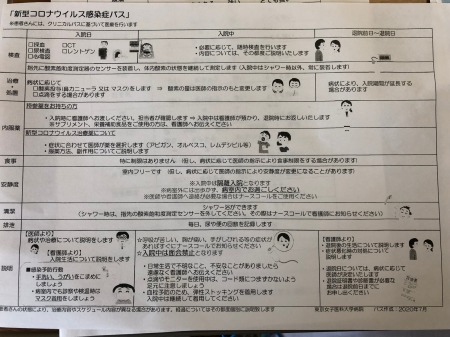 「新型コロナウイルス感染症パス」
※患者さんには、クリニカルパスに基づいて医療を行います
入院日
入院中
退院前日～退院日
検査
□採血 □CT
□尿検査 □レントゲン
□心電図
・必要に応じて、随時検査を行います
・内容については、その都度ご説明いたします
指先に酸素飽和度測定器のセンサーを装着し、体内酸素の状態を継続して測定します（入院中はシャワー時以外、常に装着します）
治療・処置
病状に応じて
□酸素投与(鼻カニューラ 又は マスク)をします ⇒ 酸素の量は医師の指示のもと変更します
□点滴をする場合があります
病状により、入院期間が延長する場合があります
内服薬
持参薬をお持ちの方
・入院時に看護師へお渡しください。担当者が確認します ⇒ 入院中は看護師が預かり、退院時にお返しいたします
※サプリメント、栄養補助食品をご使用の方は、看護師へお伝えください
新型コロナウイルス治療薬について
・症状に合わせて医師が薬を選択します（アビガン、オルベスコ、レムデシビル等）
・服薬方法、副作用についてご説明します
食事
特に制限はありません （但し、病状に応じて医師の指示により食事制限をする場合があります）
安静度
室内フリーです （但し、病状に応じて医師の指示により安静度が変更になることがあります）
※入院中は隔離入院となります
※病室外には出歩かず、病室内でお過ごしください
※医師や看護師へ連絡が必要な場合はナースコールをご使用ください
清潔
シャワー浴ができます
（シャワー時は、指先の酸素飽和度測定センサーを外してください。その際はナースコールで看護師にお知らせください）
排泄
毎日、尿や便の回数を記録します
説明
【医師より】
病状や治療について説明をします
【看護師より】
入院生活について説明をします
■感染予防行動
・手洗い、うがいをこまめにしましょう
・病室内でも診察や検温時はマスク着用をしましょう
☆呼吸が苦しい、胸が痛い、手がしびれる等の症状があればすぐにナースコールでお知らせください
☆入院中は面会禁止となります
・日常生活で不明なこと、不安なことがありましたら遠慮なく看護師へお伝えください
・点滴やモニターを使用中は、コード類につまずかないよう足元に注意しましょう
・血栓予防のため、弾性ストッキングを着用します
入院中は継続して着用してください
【看護師より】
・退院後の生活について説明します
・症状悪化時の対処について説明します
・退院日については、病状に応じて医師が決定します
・退院証明書や診断書が必要な場合は、退院前日までにお申し出ください
患者さんの状態により、治療内容やスケジュール内容が異なる場合があります。経過についてはその都度個別に説明致します
東京女子医科大学病院 パス作成 2020年7月